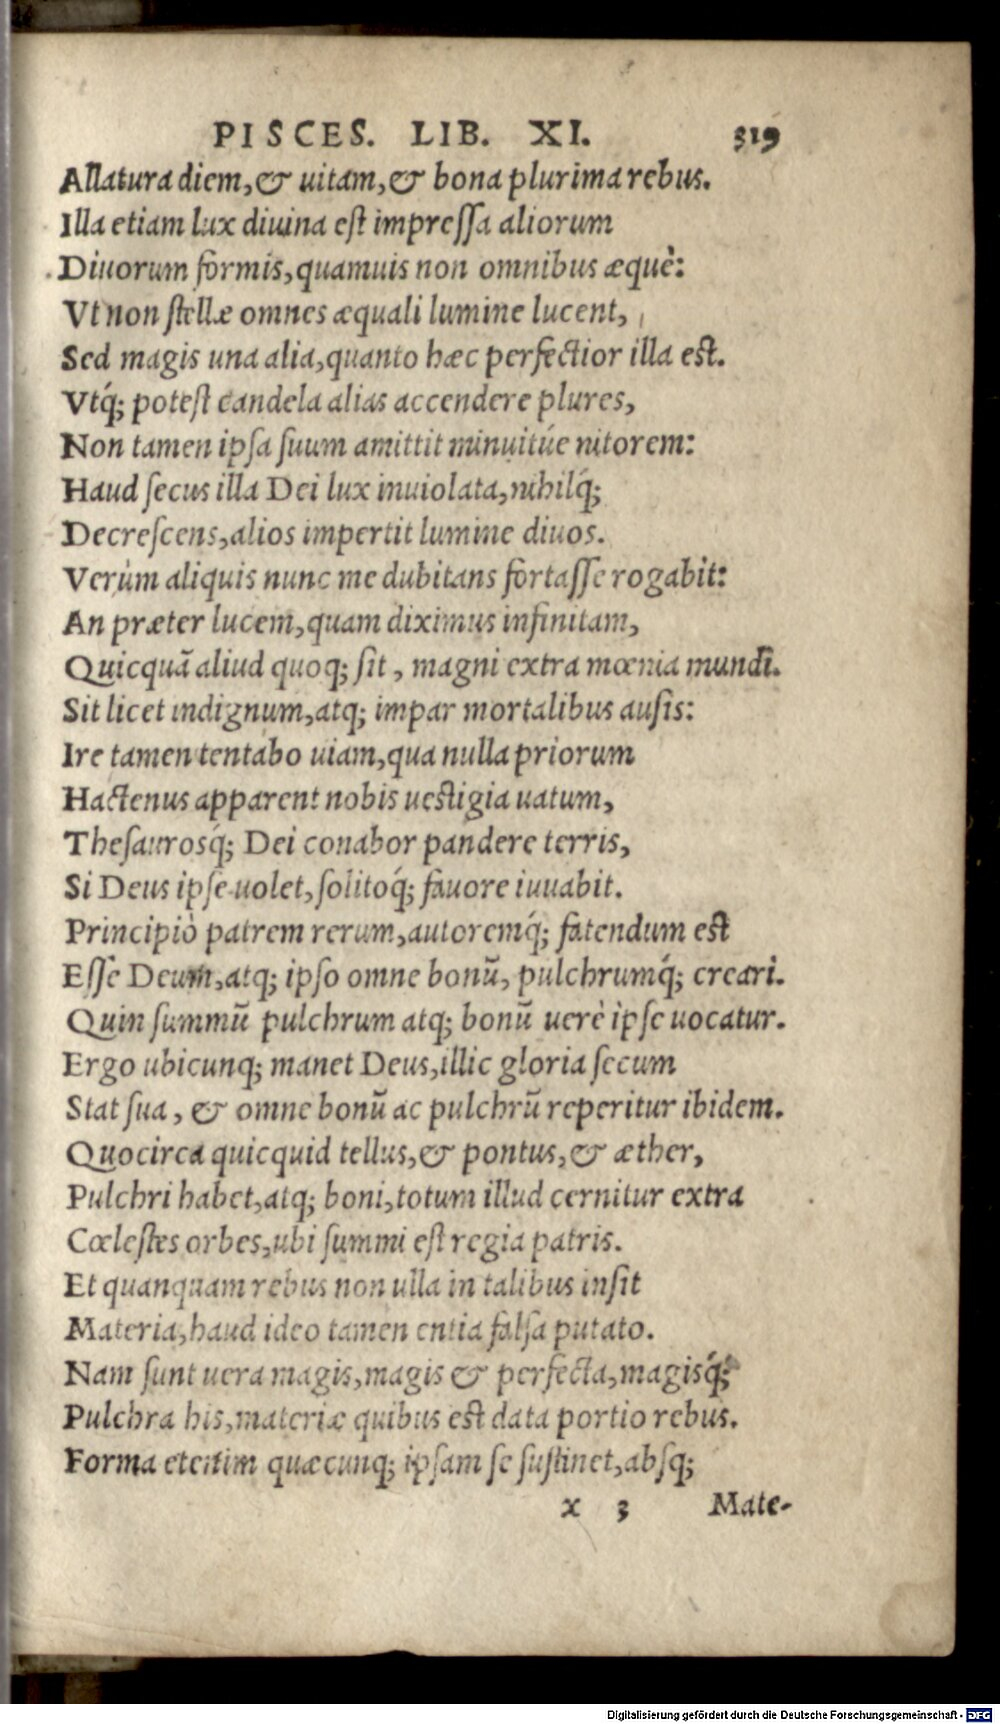 PISCES. LIB. XI. 319
Allatura diem, & uitam, & bona plurima rebus.
Illa etiam lux diuina est impressa aliorum
Diuorum formis, quamuis non omnibus æquè:
Vt non stellæ omnes æquali lumine lucent,
Sed magis una alia, quanto hæc perfectior illa est.
Vtq́; potest candela alias accendere plures,
Non tamen ipsa suum amittit minuitúe nitorem:
Haud secus illa Dei lux inuiolata, nihilq́;
Decrescens, alios impertit lumine diuos.
Verùm aliquis nunc me dubitans fortasse rogabit:
An præter lucem, quam diximus infinitam,
Quicquã aliud quoq; sit, magni extra mœnia mundi.
Sit licet indignum, atq; impar mortalibus ausis:
Ire tamen tentabo uiam, qua nulla priorum
Hactenus apparent nobis uestigia uatum,
Thesaurosq́; Dei conabor pandere terris,
Si Deus ipse uolet, solitoq́; fauore iuuabit.
Principiò patrem rerum, autoremq́; fatendum est
Esse Deum, atq; ipso omne bonũ, pulchrumq́; creari.
Quin summũ pulchrum atq; bonũ uerè ipse uocatur.
Ergo ubicunq; manet Deus, illic gloria secum
Stat sua, & omne bonũ ac pulchrũ reperitur ibidem.
Quocirca quicquid tellus, & pontus, & æther,
Pulchri habet, atq; boni, totum illud cernitur extra
Cœlestes orbes, ubi summi est regia patris.
Et quanquam rebus non ulla in talibus insit
Materia, haud ideo tamen entia falsa putato.
Nam sunt uera magis, magis & perfecta, magisq́;
Pulchra his, materiæ quibus est data portio rebus.
Forma etenim quæcunq; ipsam se sustinet, absq;
x 3 Mate-
Digitalisierung gefördert durch die Deutsche Forschungsgemeinschaft - DFG